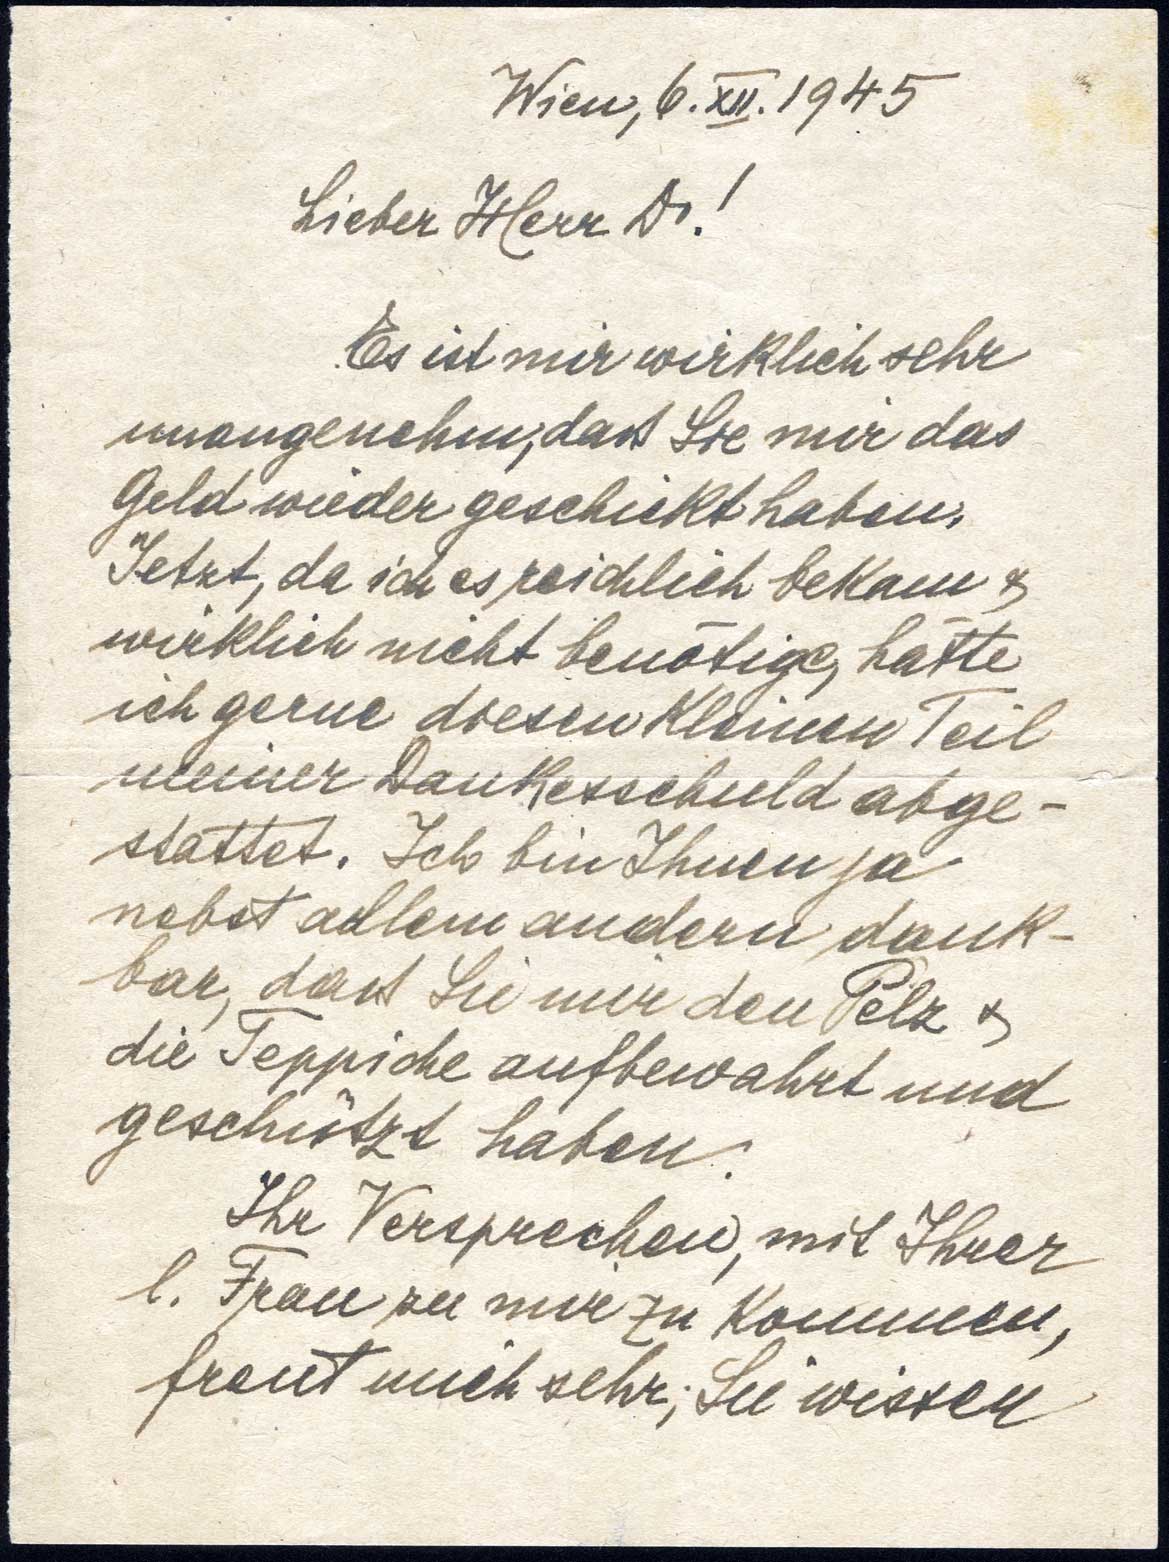 Wien, 6. XII. 1945
Lieber Herr Dr.!
Es ist mir wirklich sehr
unangenehm, daß Sie mir das
Geld wieder geschickt haben.
Jetzt, da ich es reichlich bekam &
wirklich nicht benötige, hätte
ich gerne diesen kleinen Teil
meiner Dankesschuld abge-
stattet. Ich bin Ihnen ja
nebst allem andern dank-
bar, daß Sie mir den Pelz &
die Teppiche aufbewahrt und
geschützt haben.
Ihr Versprechen, mit Ihrer
l. Frau zu mir zu kommen,
freut mich sehr; Sie wissen